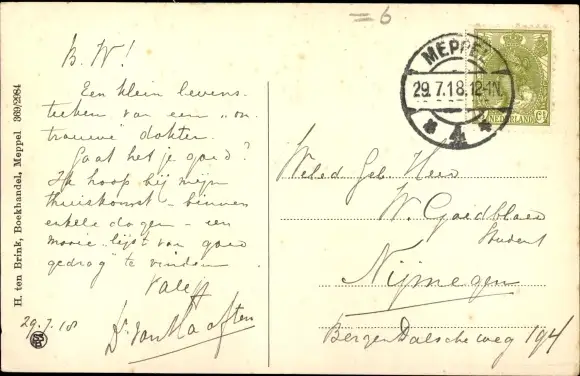 = 6
B. W!
Een klein levens-
teeken van een "on
trouwe" dokter.
Gaat het je goed?
Ik hoop bij mijn
thuiskomst - binnen
enkele dagen - een
mooie "lijst van goed
gedrag" te vinden
Vale!
29.7.18
Dr. van Haaften
H. ten Brink, Boekhandel, Meppel 369/2084
MEPPEL
29.7.18.12-1N.
4
NEDERLAND
Weled. Geb. Heer
W. Goedbloed
Student
Nijmegen
Berg en Dalsche weg 194